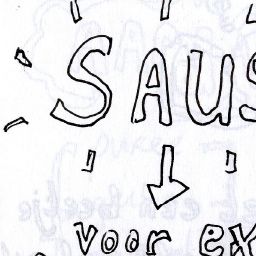 SAUS
voor ex